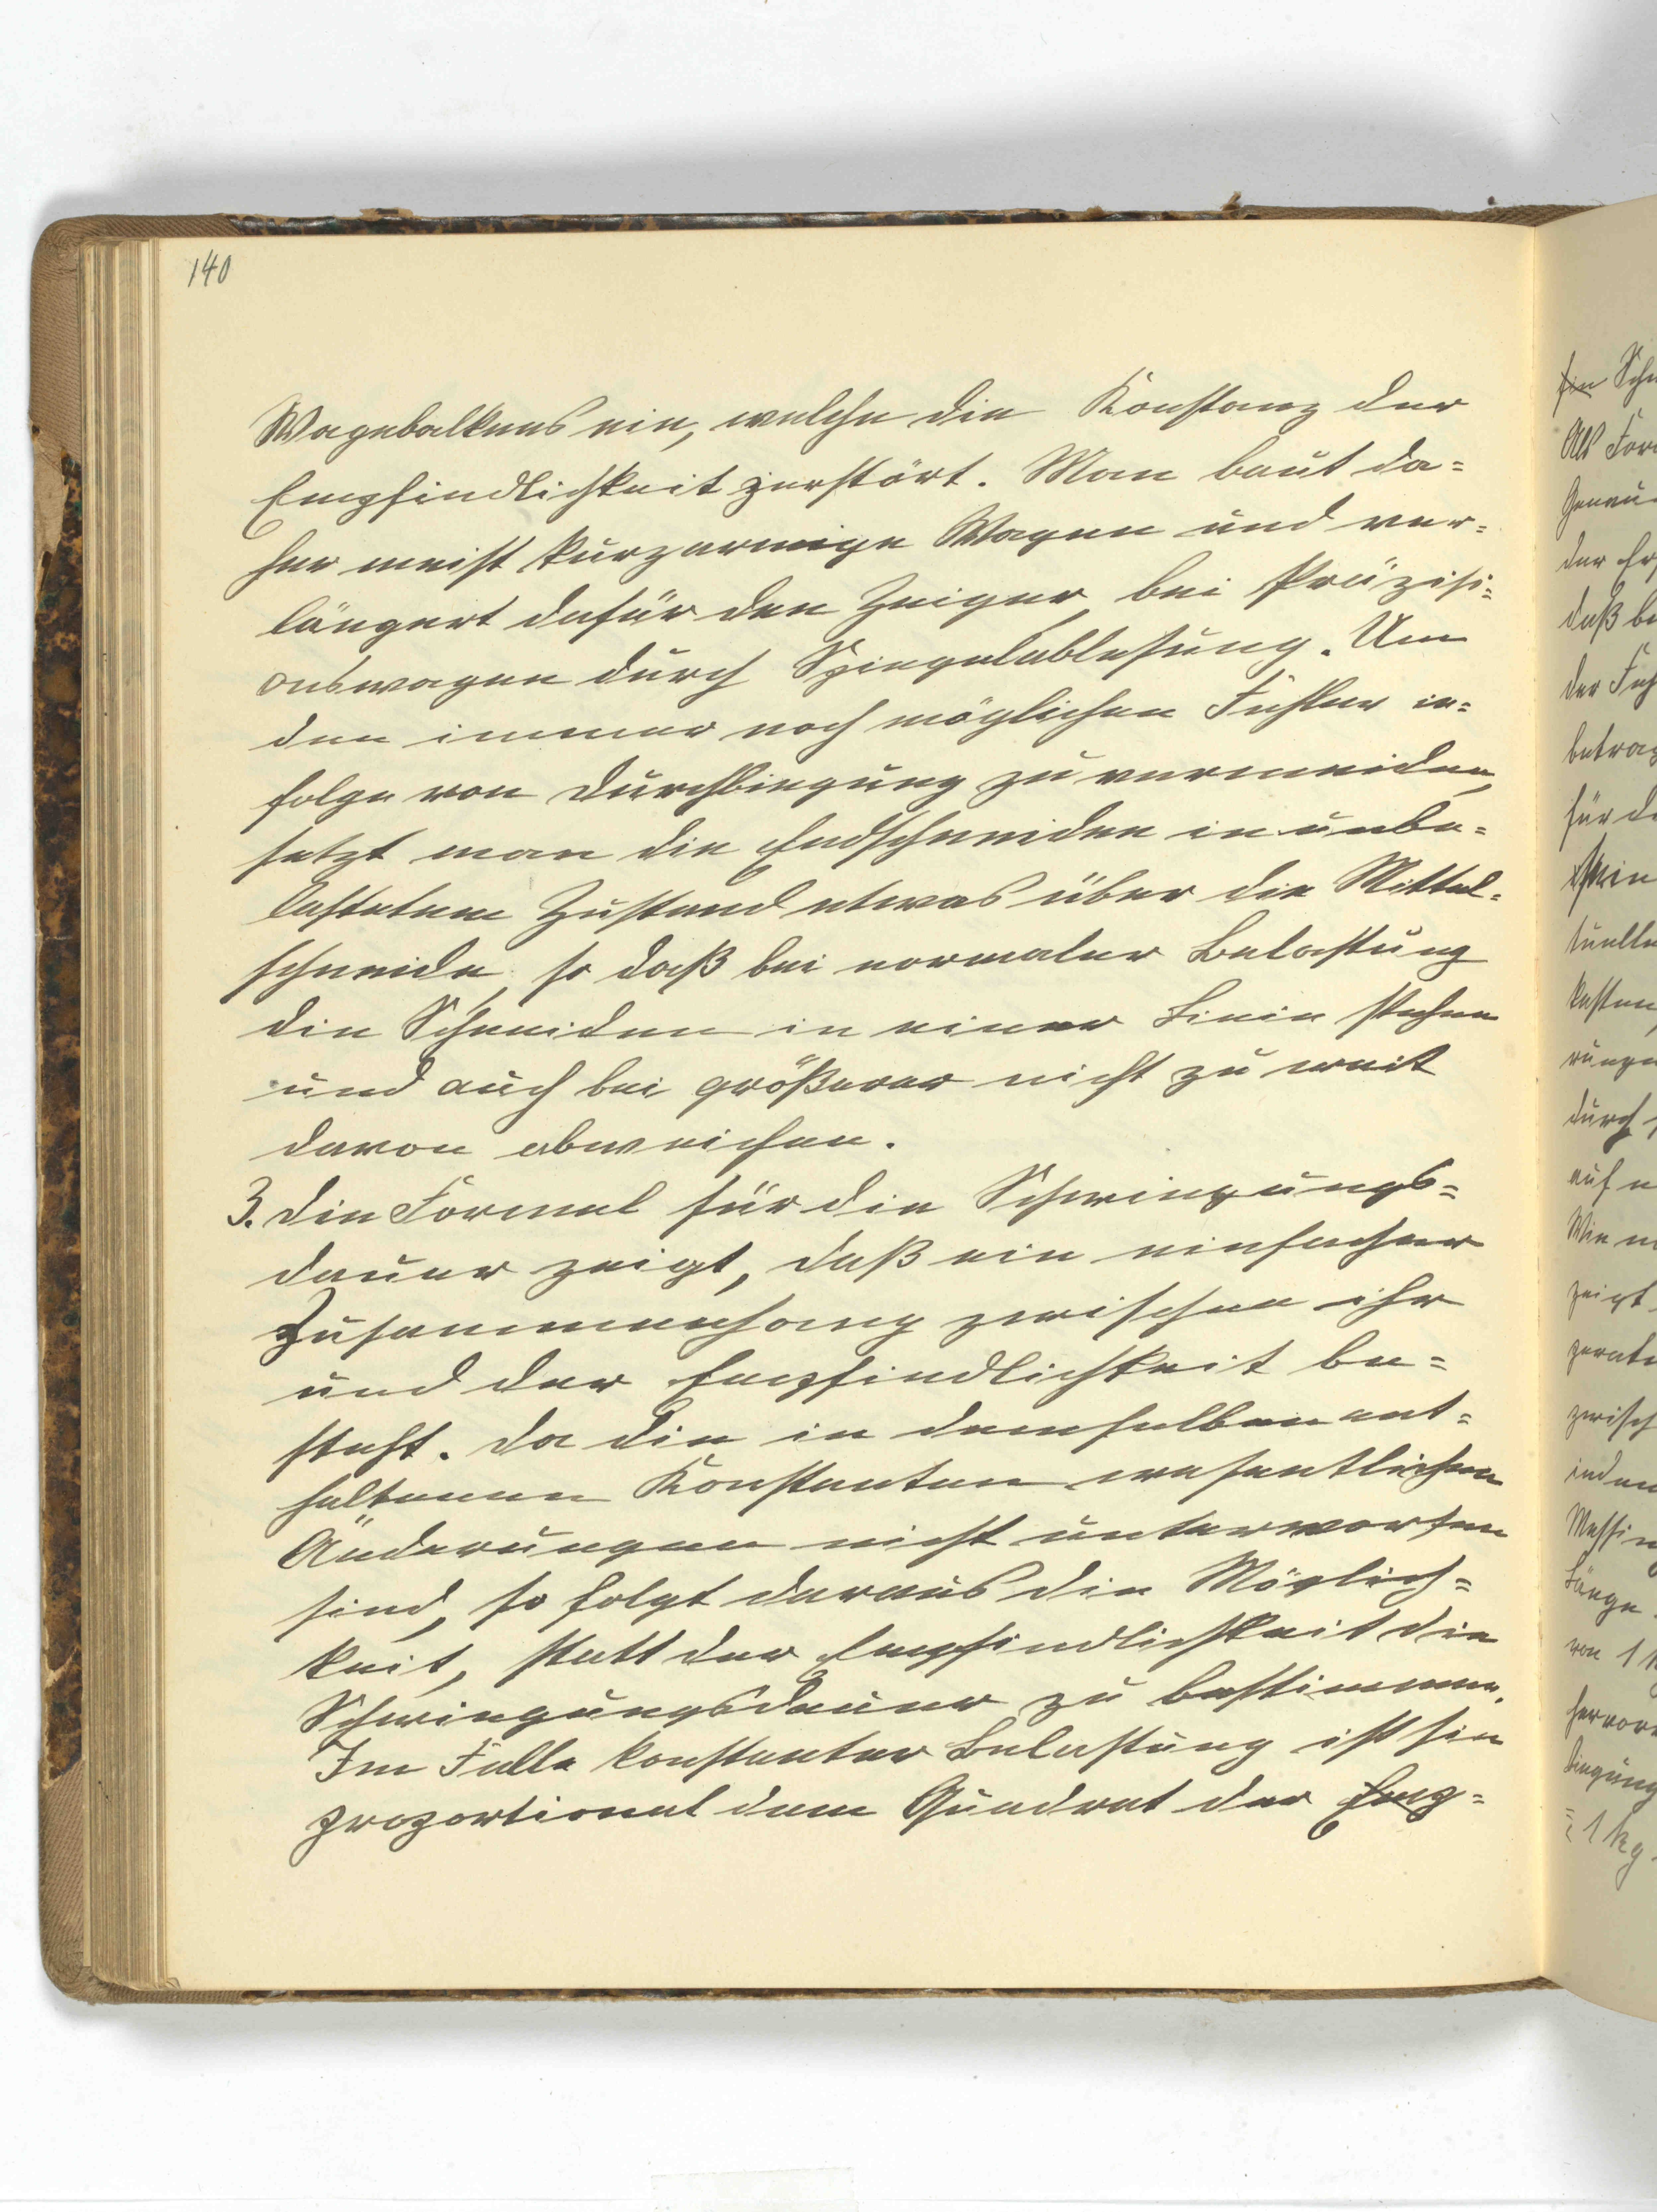 140
Wagebalkens ein, welche die Konstanz der
Empfindlichkeit zerstört. Man baut da=
her meist kurzarmige Wagen und ver=
längert dafür den Zeiger, bei Präzisi=
onswagen durch Spiegelablesung. Um
den immer noch möglichen Fehler in=
folge von Durchbiegung zu vermeiden,
setzt man die Endschneiden in unbe=
lastetem Zustand etwas über die Mittel=
schneide, so daß bei normaler Belastung
die Schneiden in einer Linie stehen
und auch bei größerer nicht zu weit
davon abweichen.
3. Die Formel für die Schwingungs=
dauer zeigt, daß ein einfacher
Zusammenhang zwischen ihr
und der Empfindlichkeit be=
steht. Da die in demselben ent=
haltenen Konstanten wesentlichen
Änderungen nicht unterworfen
sind, so folgt daraus die Möglich=
keit, statt der Empfindlichkeit die
Schwingungsdauer zu bestimmen.
Im Falle konstanter Belastung ist sie
proportional dem Quadrat der Emp=
Als
der
daß
der
für
durch
auf
Wie
zeigt
Länge
von 1
= 1 kg.